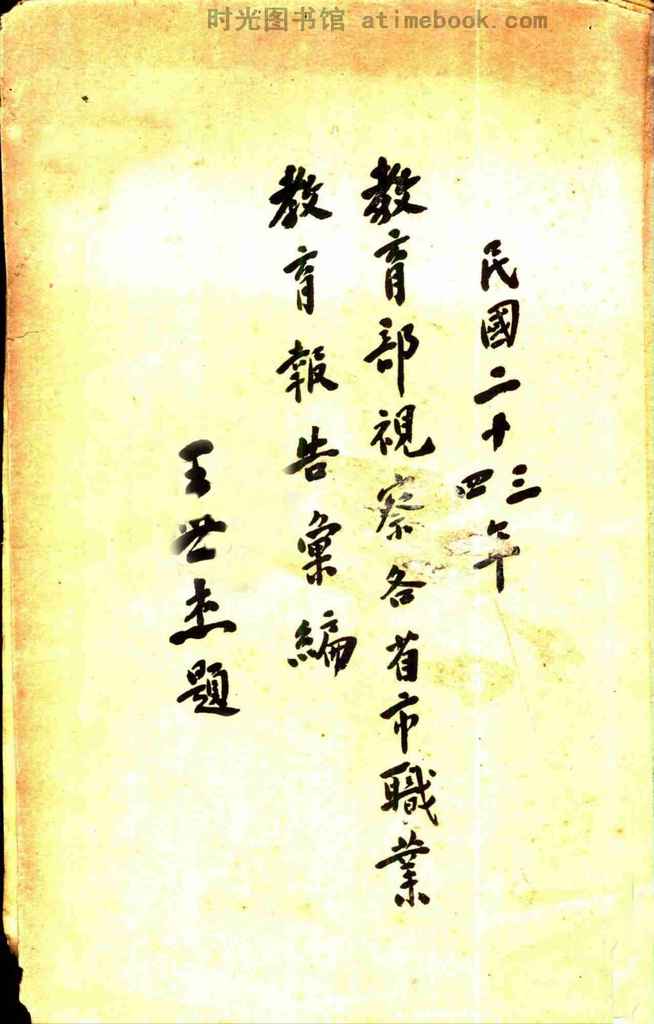 时光图书馆 atimebook.com
民國二十三四年
教育部視察各省市職業
教育報告彙編
王世杰題